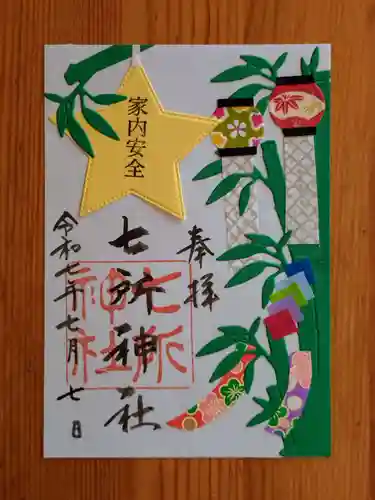 家内安全
奉拝
七所神社
七所神社
令和七年七月七日